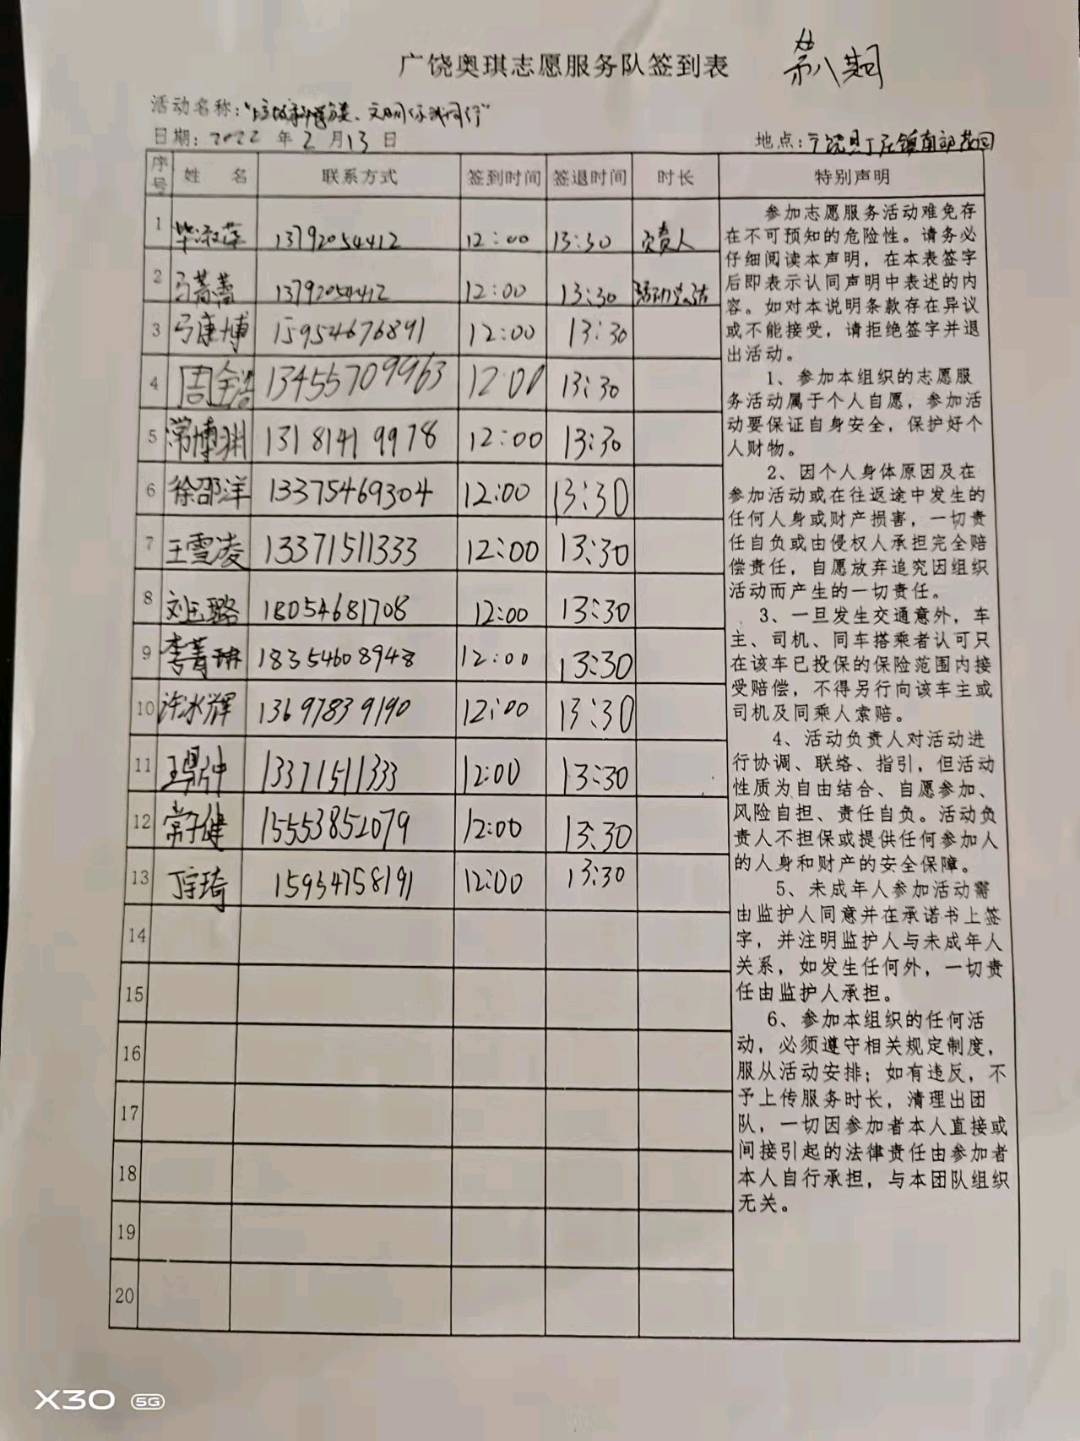 广饶奥琪志愿服务队签到表 第八期
活动名称："垃圾科学分类、文明你我同行"
日期：2022 年 2 月 13 日 地点：广饶县丁庄镇南部花园
序号 姓 名 联系方式 签到时间 签退时间 时长 特别声明
1 毕淑萍 13792054412 12:00 13:30 负责人
2 弓蔷蔷 13792054412 12:00 13:30
3 弓康博 15954676891 12:00 13:30
4 周全浩 13455709963 12:00 13:30
5 常博渊 13181419978 12:00 13:30
6 徐邵洋 13375469304 12:00 13:30
7 王雪凌 13371511333 12:00 13:30
8 刘玉璐 18054681708 12:00 13:30
9 李菁琳 18354608948 12:00 13:30
10 冰辉 13697839190 12:00 13:30
11 13371511333 12:00 13:30
12 常子健 15553852079 12:00 13:30
13 丁宇琦 15934758191 12:00 13:30
14
15
16
17
18
19
20
参加志愿服务活动难免存
在不可预知的危险性。请务必
仔细阅读本声明，在本表签字
后即表示认同声明中表述的内
容。如对本说明条款存在异议
或不能接受，请拒绝签字并退
出活动。
1、参加本组织的志愿服
务活动属于个人自愿，参加活
动要保证自身安全，保护好个
人财物。
2、因个人身体原因及在
参加活动或在往返途中发生的
任何人身或财产损害，一切责
任自负或由侵权人承担完全赔
偿责任，自愿放弃追究因组织
活动而产生的一切责任。
3、一旦发生交通意外，车
主、司机、同车搭乘者认可只
在该车已投保的保险范围内接
受赔偿，不得另行向该车主或
司机及同乘人索赔。
4、活动负责人对活动进
行协调、联络、指引，但活动
性质为自由结合、自愿参加、
风险自担、责任自负。活动负
责人不担保或提供任何参加人
的人身和财产的安全保障。
5、未成年人参加活动需
由监护人同意并在承诺书上签
字，并注明监护人与未成年人
关系，如发生任何外，一切责
任由监护人承担。
6、参加本组织的任何活
动，必须遵守相关规定制度，
服从活动安排；如有违反，不
予上传服务时长，清理出团
队，一切因参加者本人直接或
间接引起的法律责任由参加者
本人自行承担，与本团队组织
无关。
X30 5G